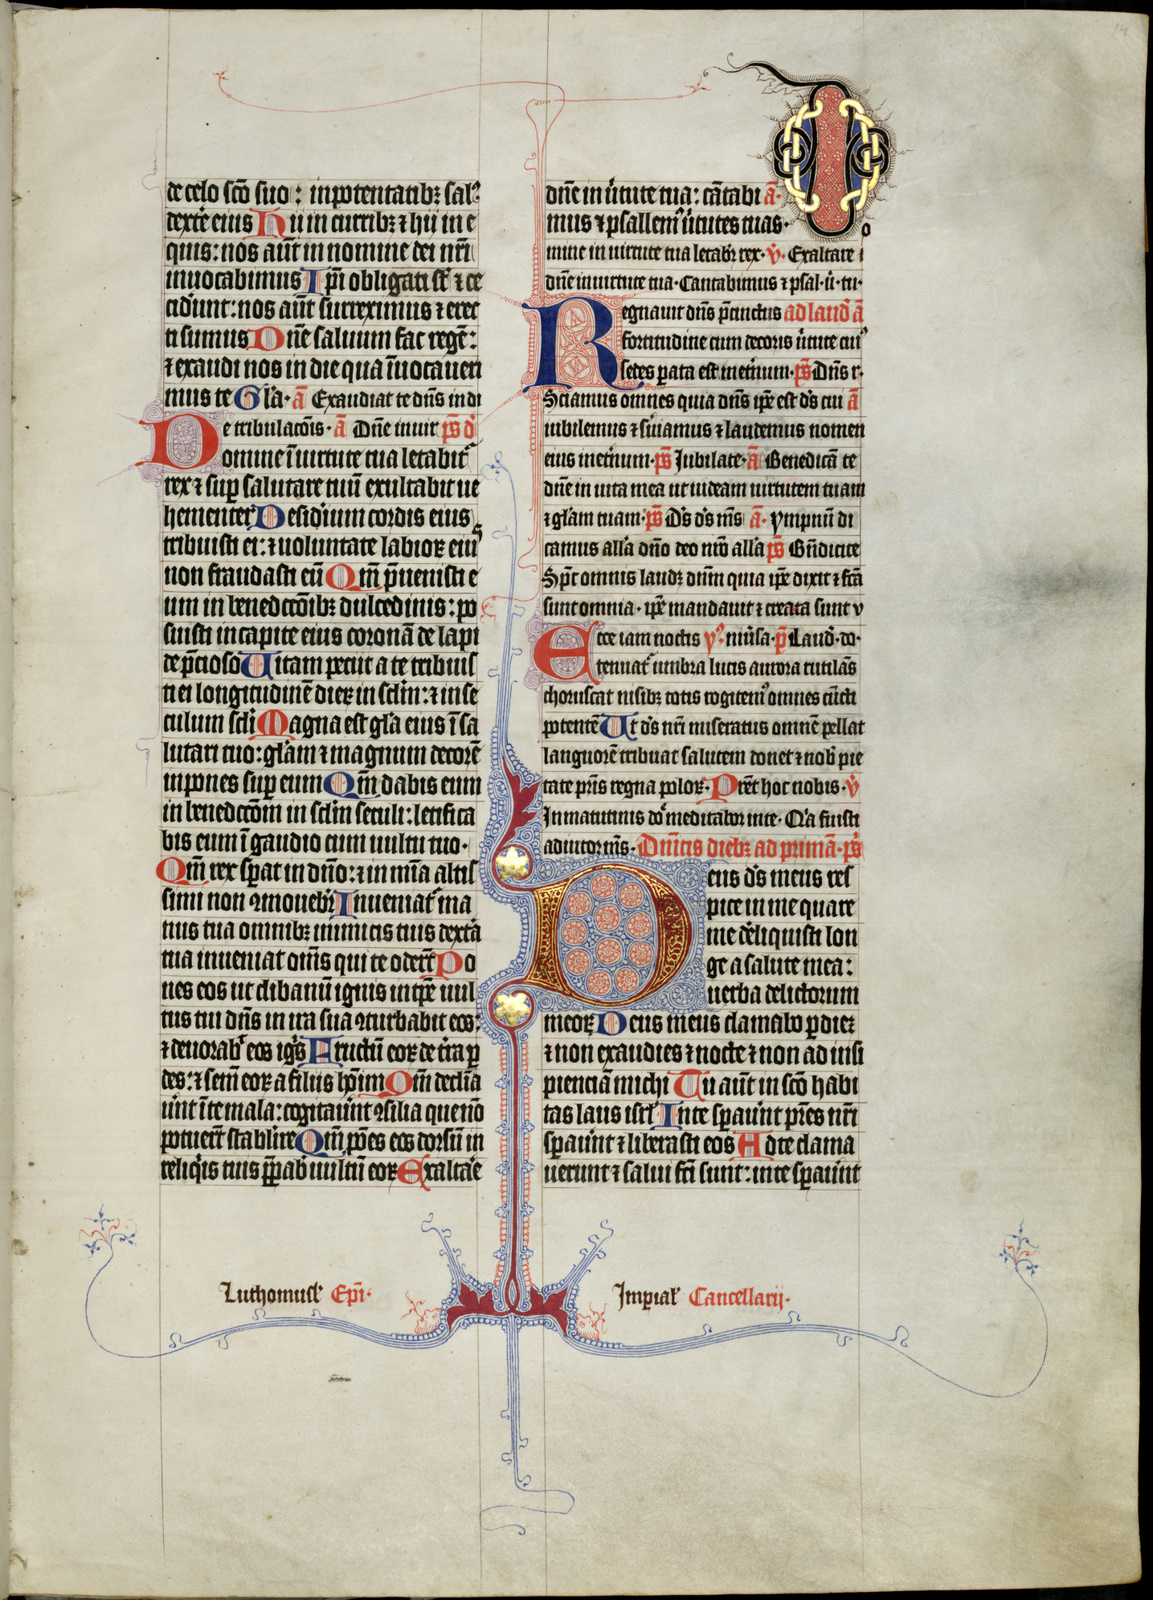 de celo sc̄o suo : in potentatibꝫ sal᷒
dext̄e eius Hii in curribꝫ ⁊ hij in e
quis : nos aūt in nomine dei nr̄i
inuocabimus Ip̄i obligati sūt ⁊ ce
cidūnt : nos aūt surreximus ⁊ erec
ti sumus Dn̄e saluum fac regē :
⁊ exaudi nos in die qua īuocaueri
mus te Gl̄a · ā Exaudiat te dn̄s in di
e tribulacōis · ā Dn̄e in uirt ps̄ d
Domine ī uirtute tua letabit᷑
rex ⁊ sup̱ salutare tuū exultabit ue
hementer Desideriū cordis eius
tribuisti ei : ⁊ uoluntate labioꝝ eiꝰ
non fraudasti eū Qm̄ p̄uenisti e
um in benedcc̄onibꝫ dulcedinis : po
suisti in capite eius coronā de lapi
de p̄cioso Uitam peciit a te tribuis
ti ei longitudinē dieꝝ in sclm̄ : ⁊ in se
culum scl̄i Magna est gl̄a eius ī sa
lutari tuo : gl̄am ⁊ magnum decorē
inpones sup̱ eum Qm̄ dabis eum
in benedcc̄om in sclm̄ seculi : letifica
bis eum ī gaudio cum uultu tuo ·
Qm̄ rex sperat in dn̄o : ⁊ in mīa altis
simi non ꝯmouebit᷑ Inueniat᷑ ma
nus tua omnibꝫ inimicis tuis dext̄a
tua inueniat om̄s qui te oder̄t Po
nes eos ut clibanū ignis in tp̄e uul
tus tui dn̄s in ira sua ꝯturbabit eos :
⁊ deuorab᷑ eos iḡs Fructū eoꝝ de t̄ra ꝑ
des : ⁊ sem̄ eoꝝ a filiis ho̅im Qm̄ declīa
uer̄t ī te mala : cogitauer̄t ꝯsilia que nō
potuer̄t stabilire Qm̄ po̅es eos dorsū in
reliq̇is tuis p̄p̱abis uultū eoꝝ Exaltare
dn̄e in uirtute tua : cātabi ā ·
mus ⁊ psallemꝰ uirtutes tuas ·
Do
mine in uirtute tua letabit᷑ rex · v̄ · Exaltare
dn̄e in uirtute tua · Cantabimus ⁊ psal · ū · tu ·
Regnauit dn̄s p̄cinctus ad laud̄ ā
fortitudine cum decoris uirtute eiꝰ
sedes parata est in et̄num · ps̄ Dn̄s r ·
Sciamus omnes quia dn̄s ip̄e est ds̄ cui ā
iubilemus ⁊ suiamus ⁊ laudemus nomen
eius in et̄num · ps̄ Jubilate · ā Benedicā te
dn̄e in uita mea ut uideam uirtutem tuam
⁊ gl̄am tuam · ps̄ Ds̄ ds̄ ms̄ ā · Ympnū di
camus all̄a dn̄o deo nr̄o all̄a ps̄ Bn̄dicite
Sp̄t omnis laudꝫ dn̄m quia ip̄e dixit ⁊ fc̄a
sunt omnia · ip̄e mandauit ⁊ creata sunt v
Ecce iam noctis yᵒ · mīsa · p̄ Laud · do ·
tenuat᷑ umbra lucis aurora rutilās
choruscat nisibꝫ totis rogitemꝰ omnes cūcti
potentē Ut ds̄ nr̄i miseratus omnē pellat
languorē tribuat salutem donet ⁊ nob̄ pie
tate pr̄is regna poloꝝ · Pr̄estet hoc nobis · v̄
In matutinis dō meditabor in te · Q̄a fuisti
adiutor ms̄ · Dn̄icis diebꝫ ad primā · ps̄
Deus ds̄ meus res
pice in me quare
me dereliquisti lon
ge a salute mea :
uerba delictorum
meoꝝ Deus meus clamabo ꝑ diem
⁊ non exaudies ⁊ nocte ⁊ non ad insi
pienciā michi Tu aūt in sc̄o habi
tas laus isrl̄ In te sꝑauer̄t pr̄es nr̄i
sꝑauer̄t ⁊ liberasti eos Ad te clama
uerunt ⁊ salui fc̄i sunt : in te sꝑauer̄t
Luthomusl̄ Ep̄i ·
Imp̱ial̄ Cancellarij ·